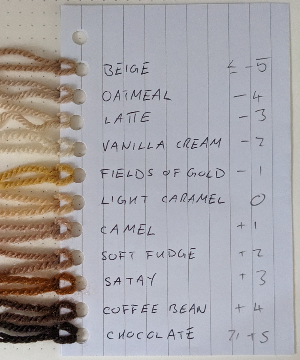 BEIGE ≤ -5
OATMEAL -4
LATTE -3
VANILLA CREAM -2
FIELDS OF GOLD -1
LIGHT CARAMEL 0
CAMEL +1
SOFT FUDGE +2
SATAY +3
COFFEE BEAN +4
CHOCOLATE ≥ +5